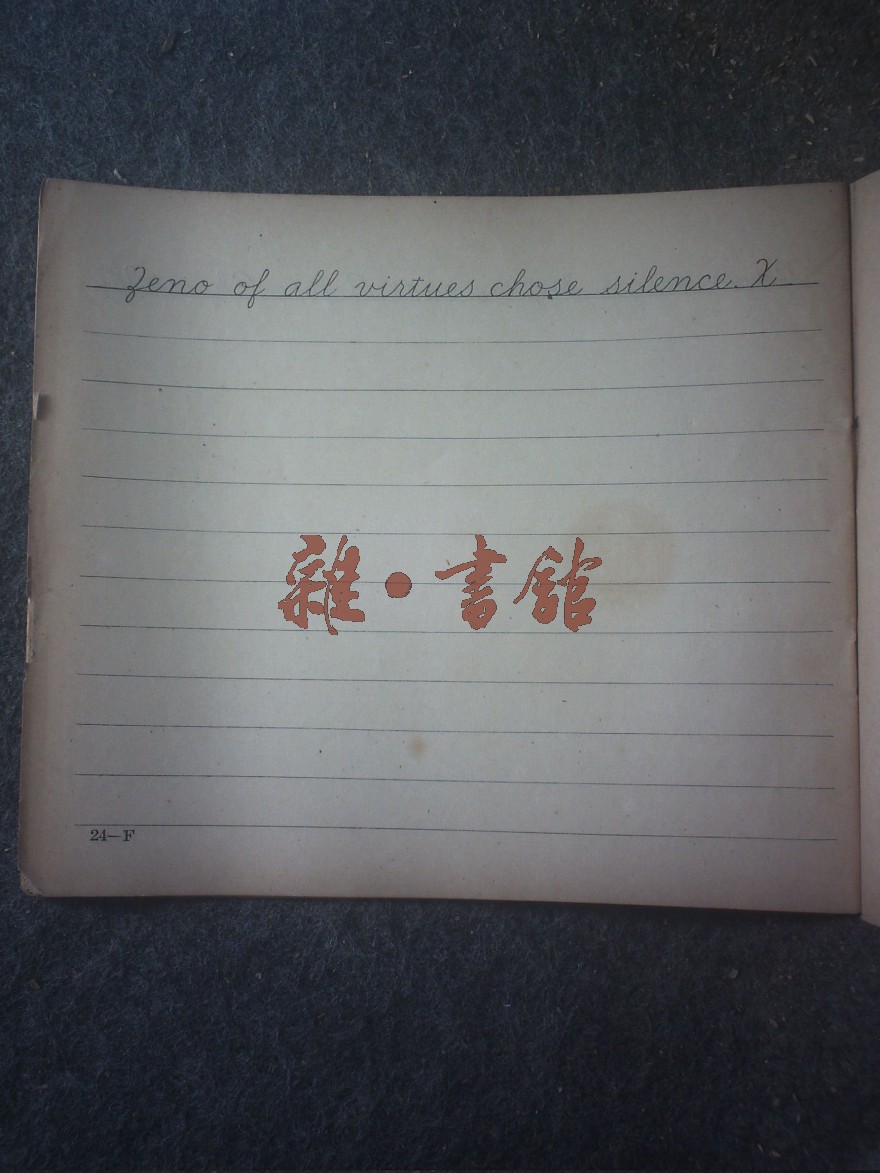 Zeno of all virtues chose silence. X
雜·書館
24—F